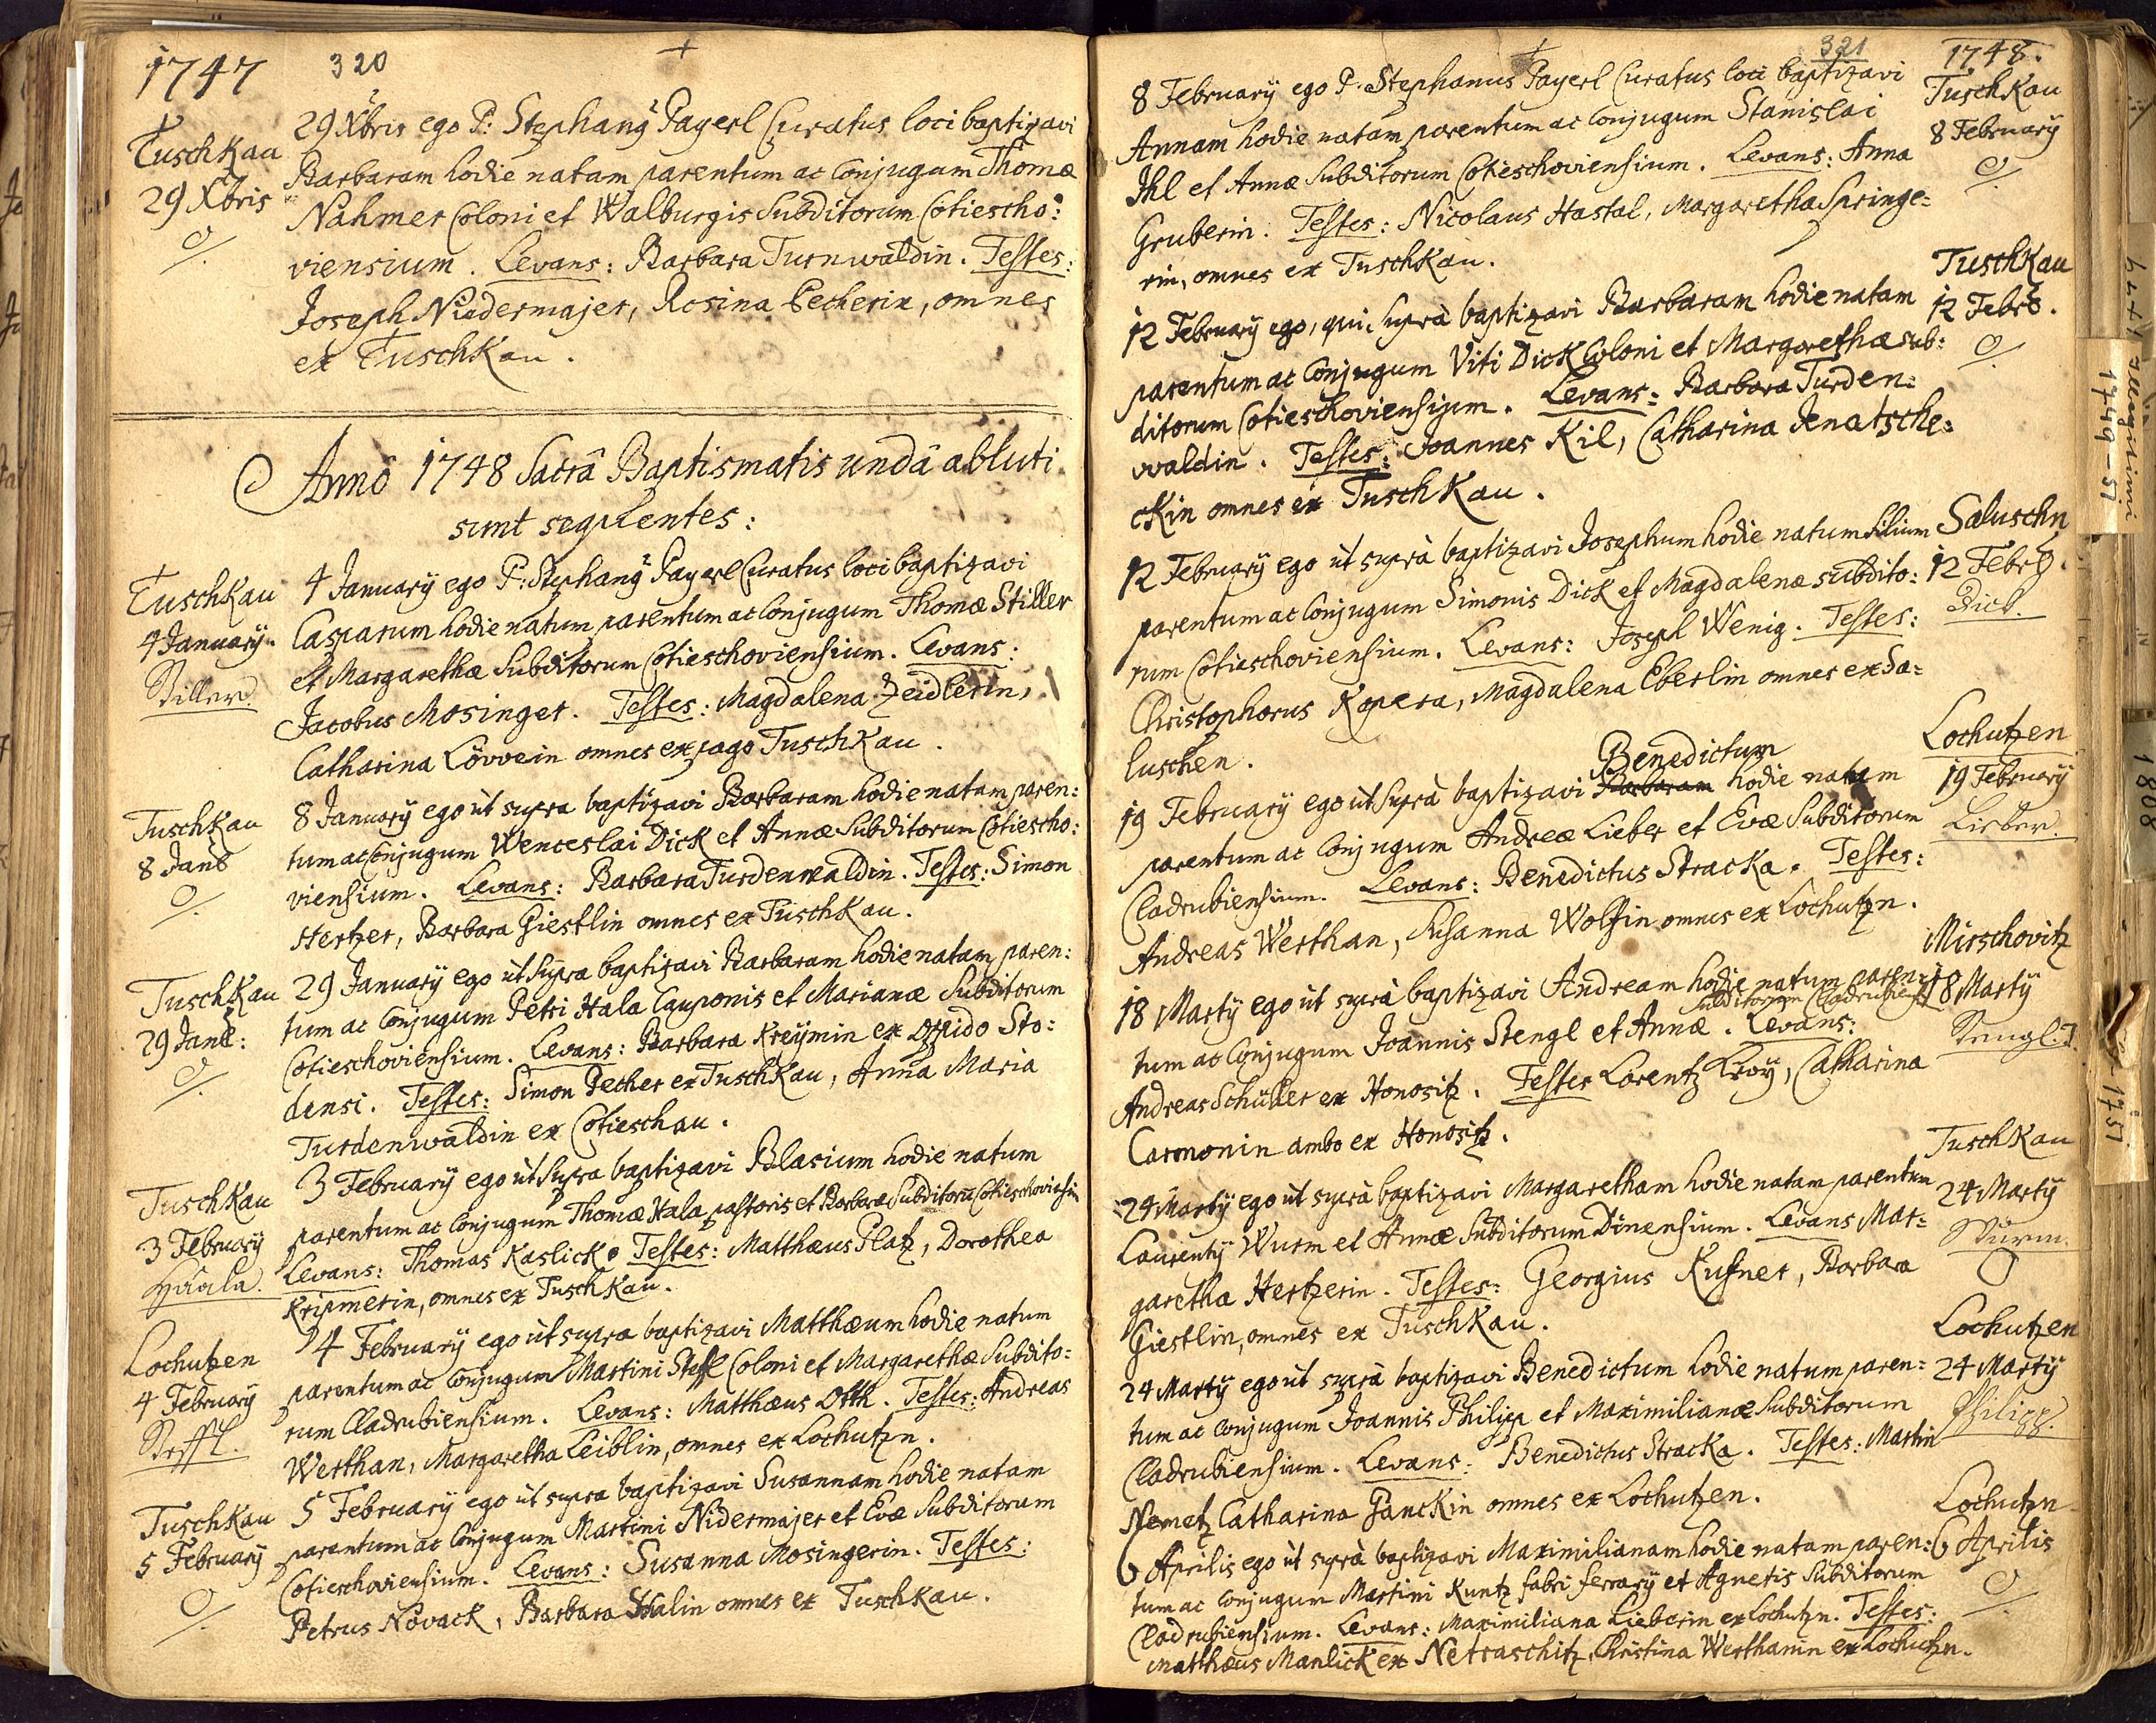 1747 320 +
Tuschkau
29 Xbris
o/.
29 Xbris ego P: Stephang Payerl Curatus loci baptizavi
Barbaram hodie natam parentum ac Conjugum Thomæ
Nahmer Coloni et Walburgis Subditorum Cotiescho:
viensium. Levans: Barbara Turnwaldin. Testes:
Joseph Niedermajer, Rosina Pecherin, omnes
ex Tuschkau.
Annô 1748 Sacrâ Baptismatis undâ abluti
sunt sequentes:
Tuschkau
4 January.
Stiller.
4 January ego P: Stephang Payerl Curatus loci baptizavi
Casparum hodie natum parentum ac Conjugum Thomæ Stiller
et Margarethæ Subditorum Cotieschoviensium. Levans:
Jacobus Mosinger. Testes: Magdalena Zeidlerin,
Catharina Lövvein omnes ex pago Tuschkau.
Tuschkau
8 Janÿ
o/.
8 January ego ùt supra baptizavi Barbaram hodie natam paren:
tum ac Conjugum Wenceslai Dick et Annæ Subditorum Cotiescho:
viensium. Levans: Barbara Turdenwaldin. Testes: Simon
Hertzer, Barbara Giestlin omnes ex Tuschkau.
Tuschkau
29 Janÿ:
o/.
29 January ego ùt supra baptizavi Barbaram hodie natam paren:
tum ac Conjugum Petri Hala Cauponis et Marianæ Subditorum
Cotieschoviensium. Levans: Barbara Kreÿmin ex oppido Sto:
densi. Testes: Simon Pecher ex Tuschkau, Anna Maria
Turdenwaldin ex Cotieschau.
Tuschkau
3 February
Haala.
3 February ego ùt supra baptizavi Blasium hodie natum
parentum ac Conjugum Thomæ Hala pastoris et Barbaræ Subditorū Cotieschoviensiū
Levans: Thomas Kaslick. Testes: Matthæus Platz, Dorothea
Kripnerin, omnes ex Tuschkau.
Lochutzen
4 February
Steffl.
4 February ego ùt supra baptizavi Matthæum hodie natum
parentum ac Conjugum Martini Steffl Coloni et Margarethæ Subdito:
rum Cladrubiensium. Levans: Matthæus Otth. Testes: Andreas
Werthan, Margaretha Leiblin, omnes ex Lochutzn.
Tuschkau
5 February
o/.
5 February ego ùt supra baptizavi Susannam hodie natam
parentum ac Conjugum Martini Nidermajer et Evæ Subditorum
Cotieschoviensium. Levans: Susanna Mosingerin. Testes:
Petrus Novack, Barbara Halin omnes ex Tuschkau.
+ 321 1748.
Tuschkau
8 February
o/.
8 February ego P. Stephanus Payerl Curatus loci baptizavi
Annam hodie natam parentum ac Conjugum Stanislai
Ihl et Annæ Subditorum Cotieschoviensium. Levans: Anna
Gruberin. Testes: Nicolaus Hastal, Margaretha Springe:
rin, omnes ex Tuschkau.
Tuschkau
12 Febrÿ.
o/.
12 February ego, qui suprà baptizavi Barbaram hodie natam
parentum ac Conjugum Viti Dick Coloni et Margarethæ sub:
ditorum Cotieschoviensium. Levans: Barbara Turden:
waldin. Testes: Joannes Kil, Catharina Jenatsche:
ckin omnes ex Tuschkau.
Saluschn
12 Febrÿ.
Dick.
12 February ego ùt suprà baptizavi Josephum hodie natum filium
parentum ac Conjugum Simonis Dick et Magdalenæ subdito:
rum Cotieschoviensium. Levans: Joseph Wenig. Testes:
Christophorus Kopera, Magdalena Eberlin omnes ex Sa:
luschen.
Lochutzen
19 February
Lieber.
Benedictum
19 February ego ùt suprà baptizavi Barbaram hodie natum
parentum ac Conjugum Andreæ Lieber et Evæ Subditorum
Cladrubiensium. Levans: Benedictus Stracka. Testes:
Andreas Werthan, Susanna Wolfin omnes ex Lochutzn.
Mirschovitz
18 Marty
Stengl.
18 Marty ego ùt suprà baptizavi Andream hodie natum paren:
Subditorum Cladrubiens:
tum ac Conjugum Joannis Stengl et Annæ. Levans:
Andreas Schüller ex Honositz. Testes Lorentz Kroÿ, Catharina
Carmonin ambo ex Honositz.
Tuschkau
24 Marty
Wurm.
24 Marty ego ùt suprà baptizavi Margaretham hodie natam parentum
Laurenty Wurm et Annæ Subditorum Dinensium. Levans Mar:
garetha Hertzerin. Testes: Georgius Kufner, Barbara
Giestlin, omnes ex Tuschkau.
Lochutzen
24 Marty
Philipp.
24 Marty ego ùt suprà baptizavi Benedictum hodie natum paren:
tum ac Conjugum Joannis Philipp et Maximilianæ Subditorum
Cladrubiensium. Levans: Benedictus Stracka. Testes: Martin
Nemetz Catharina Janckin omnes ex Lochutzen.
Lochutzn
6 Aprilis
o/.
6 Aprilis ego ùt suprà baptizavi Maximilianam hodie natam paren:
tum ac Conjugum Martini Kuntz fabri ferrary et Agnetis Subditorum
Cladrubiensium. Levans: Maximiliana Lieberin ex Lochutzn. Testes:
Matthæus Manlick ex Netraschitz, Christina Werthanin ex Lochutzn.
illegitimi
1749-51
1808
1751